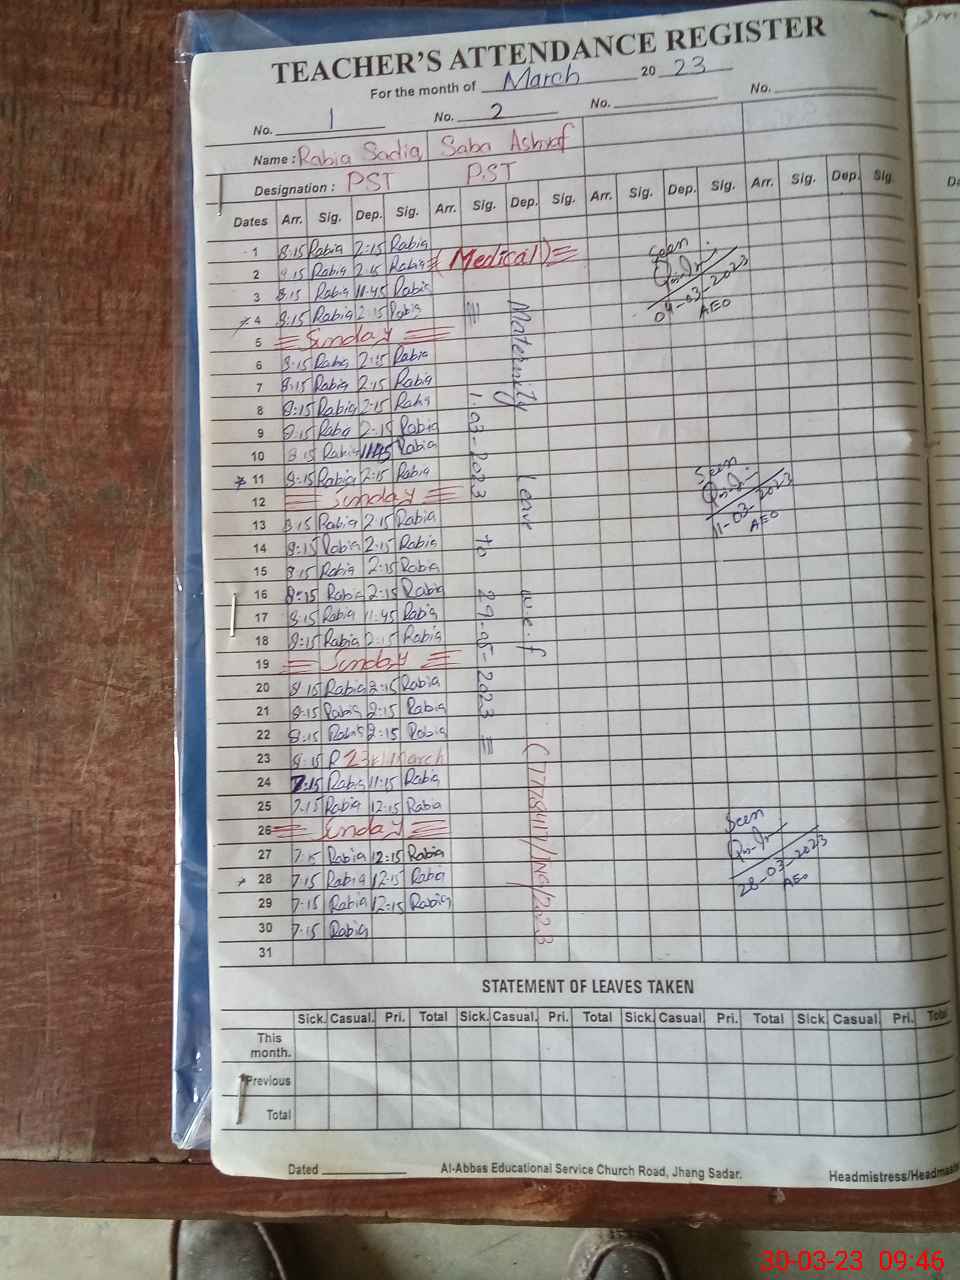 TEACHER'S ATTENDANCE REGISTER
For the month of March 2023
No. 1 No. 2 No. No.
Name : Rabia Sadia Saba Ashraf
Designation : PST PST
Dates Arr. Sig. Dep. Sig. Arr. Sig. Dep. Sig. Arr. Sig. Dep. Sig. Arr. Sig. Dep. Sig.
1 8:15 Rabia 2:15 Rabia (Medical)
2 8:15 Rabia 2:15 Rabia
3 8:15 Rabia 11:45 Rabia
4 8:15 Rabia 2:15 Rabia
5 Sunday
6 8:15 Rabia 2:15 Rabia
7 8:15 Rabia 2:15 Rabia
8 8:15 Rabia 2:15 Rabia
9 8:15 Rabia 2:15 Rabia
10 8:15 Rabia 11:45 Rabia
11 8:15 Rabia 2:15 Rabia
12 Sunday
13 8:15 Rabia 2:15 Rabia
14 8:15 Rabia 2:15 Rabia
15 8:15 Rabia 2:15 Rabia
16 8:15 Rabia 2:15 Rabia
17 8:15 Rabia 11:45 Rabia
18 8:15 Rabia 2:15 Rabia
19 Sunday
20 8:15 Rabia 2:15 Rabia
21 8:15 Rabia 2:15 Rabia
22 8:15 Rabia 2:15 Rabia
23 8:15 R 23rd March
24 7:15 Rabia 11:15 Rabia
25 7:15 Rabia 12:15 Rabia
26 Sunday
27 7:15 Rabia 12:15 Rabia
28 7:15 Rabia 12:15 Rabia
29 7:15 Rabia 12:15 Rabia
30 7:15 Rabia
31
Maternity Leave w.e.f
1-03-2023 to 29-05-2023
Seen
04-03-2023
AEO
Seen
11-03-2023
AEO
Seen
28-03-2023
AEO
STATEMENT OF LEAVES TAKEN
Sick. Casual. Pri. Total Sick. Casual. Pri. Total Sick. Casual Pri. Total Sick. Casual. Pri. Total
This month.
Previous
Total
Dated Al-Abbas Educational Service Church Road, Jhang Sadar. Headmistress/Headmaste
30-03-23 09:46